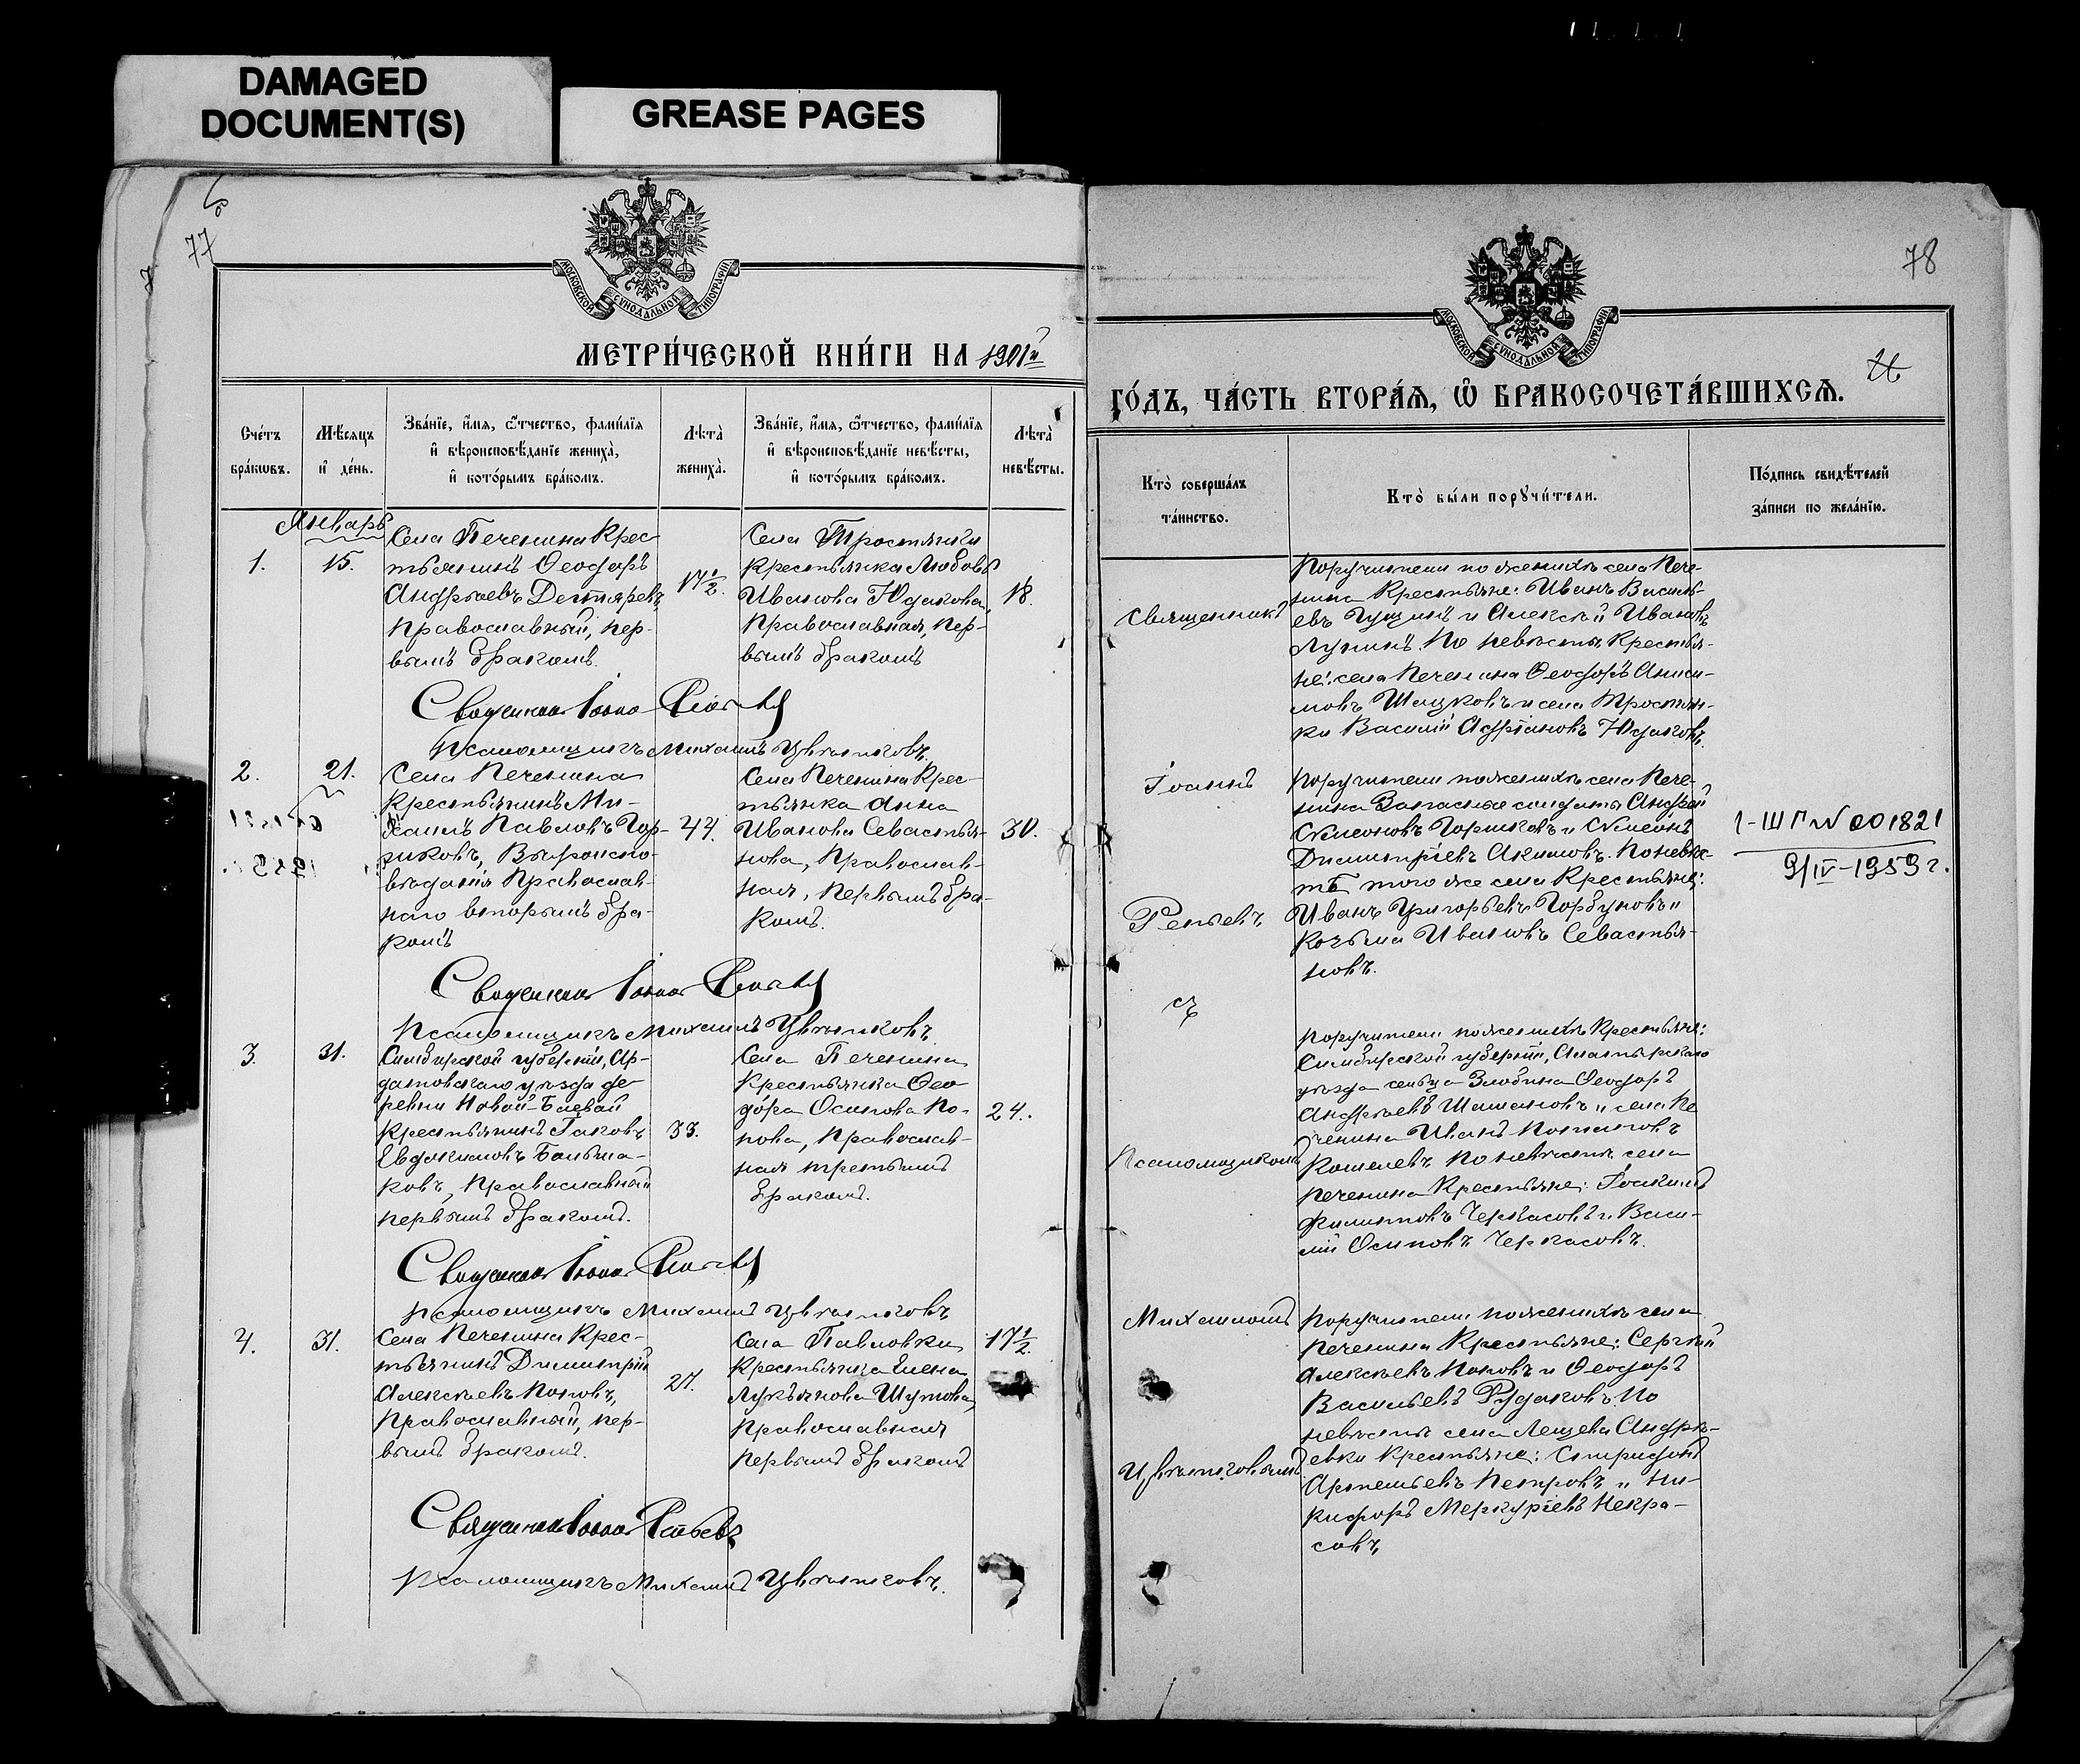 DAMAGED
DOCUMENT(S)
GREASE PAGES
77
78
МОСКОВСКОЙ СУНОДАЛЬНОЙ ТИПОГРАФІИ
МЕТРИ́ЧЕСКОЙ КНИ́ГИ НА 1901й
Сче́тъ
бра́кѡвъ.
Мѣ́сяцъ
и҆ де́нь.
Зва́нїе, и҆́мя, ѻ҆́тчество, фами́лїя
и҆ вѣроисповѣ́данїе жениха̀,
и҆ кото́рымъ бра́комъ.
Лѣта̀
жениха̀.
Зва́нїе, и҆́мя, ѻ҆́тчество, фами́лїя
и҆ вѣроисповѣ́данїе невѣ́сты,
и҆ кото́рымъ бра́комъ.
Лѣта̀
невѣ́сты.
Январь
1.
15.
Села Печенина Крес-
тьянинъ Ѳеодоръ
Андреевъ Дегтяревъ,
Православный, пер-
вымъ бракомъ.
17½.
Села Тростянки
Крестьянка Любовь
Иванова Юдакова,
Православная, пер-
вымъ бракомъ
18.
Священникъ Іоаннъ Репьевъ
Псаломщикъ Михаилъ Цвѣтковъ.
2.
21.
Села Печенина
Крестьянинъ Ми-
хаилъ Павловъ Гор-
шковъ, Вѣроиспо-
вѣданія Православ-
наго вторымъ бра-
комъ
44.
Села Печенина Крес-
тьянка Анна
Иванова Севастья-
нова, Православ-
ная, первымъ бра-
комъ.
30.
Священникъ Іоаннъ Репьевъ
Псаломщикъ Михаилъ Цвѣтковъ.
3.
31.
Симбирской губерніи, Ар-
датовскаго уѣзда де-
ревни Новой-Баевай
Крестьянинъ Іаковъ
Евдокимовъ Больша-
ковъ, Православный
первымъ бракомъ.
33.
Села Печенина
Крестьянка Ѳео
дора Осипова По-
пова, Православ-
ная третьимъ
бракомъ.
24.
Священникъ Іоаннъ Репьевъ
Псаломщикъ Михаилъ Цвѣтковъ
4.
31.
Села Печенина Крес-
тьянинъ Димитрій
Алексѣевъ Поповъ,
Православный, пер-
вымъ бракомъ.
27.
Села Павловки
Крестьянка Елена
Лукьянова Шутова,
Православная
первымъ бракомъ
17½.
Священникъ Іоаннъ Репьевъ
Псаломщикъ Михаилъ Цвѣтковъ.
МОСКОВСКОЙ СУНОДАЛЬНОЙ ТИПОГРАФІИ
ГО́ДЪ, ЧА́СТЬ ВТОРА́Я, Ѡ҆ БРАКОСОЧЕТА́ВШИХСЯ.
Кто̀ соверша́лъ
та́инство.
Кто̀ бы́ли порꙋчи́тели.
По́дпись свидѣ́телей
за́писи по жела́нїю.
Священникъ
Іоаннъ
Репьевъ
съ
Псаломщикомъ
Михаиломъ
Цвѣтковымъ
Поручители по женихѣ села Пече-
нина Крестьяне: Иванъ Василь-
евъ Гущинъ и Алексѣй Ивановъ
Лунинъ. По невѣстѣ Крестья-
не: села Печенина Ѳеодоръ Аниси-
мовъ Шацковъ и села Тростян-
ки Василій Афріановъ Юдаковъ.
Поручители по женихѣ села Пече-
нина Запасные солдаты Андрей
Симеоновъ Горшковъ и Симеонъ
Димитріевъ Акимовъ. По невѣс-
тѣ того же села Крестьяне:
Иванъ Григорьевъ Горбуновъ и
Козьма Ивановъ Севастья-
новъ.
1-ШГ № 001821
9/IV-1959 г.
Поручители по женихѣ Крестьяне:
Симбирской губерніи, Алатырскаго
уѣзда сельца Злобина Ѳеодоръ
Андреевъ Шашановъ и села Пе
ченина Иванъ Потаповъ
Кошелевъ. По невѣстѣ села
Печенина Крестьяне: Іоакимъ
Филиповъ Черкасовъ и Васи-
лій Осиповъ Черкасовъ.
Поручители по женихѣ села
Печенина Крестьяне: Сергѣй
Алексѣевъ Поповъ и Ѳеодоръ
Васильевъ Рудаковъ. По
невѣстѣ села Лещева Андре-
евки Крестьяне: Спиридонъ
Артемьевъ Петровъ и Ни-
кифоръ Меркуріевъ Некра-
совъ